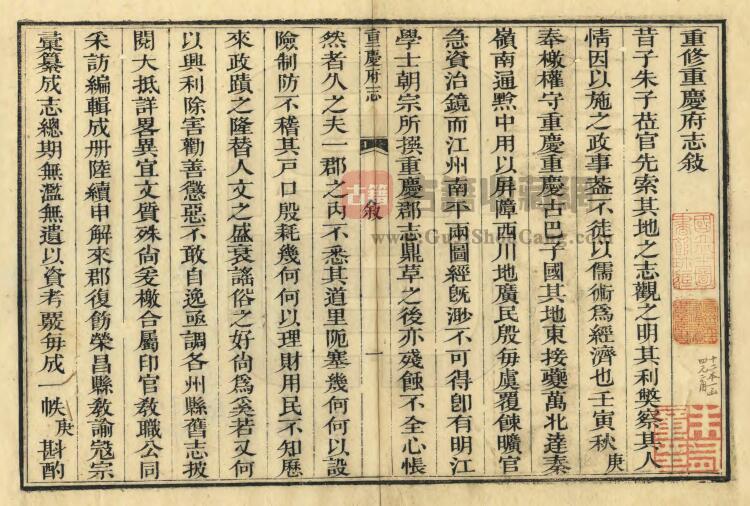 重修重慶府志敘
昔子朱子莅官先索其地之志觀之明其利弊察其人
情因以施之政事葢不徒以儒術爲經濟也壬寅秋庚
奉檄權守重慶重慶古巴子國其地東接夔萬北達秦
嶺南通黔中用以屏障西川地廣民殷毎虞覆餗曠官
急資治鏡而江州南平兩圖經旣渺不可得卽有明江
學士朝宗所撰重慶郡志鼎草之後亦殘蝕不全心悵
然者久之夫一郡之内不悉其道里阨塞幾何何以設
險制防不稽其戸口殷耗幾何何以理財用民不知歷
來政蹟之隆替人文之盛衰謠俗之好尙爲奚若又何
以興利除害勸善懲惡不敢自逸亟調各州縣舊志披
閱大抵詳畧異宜文質殊尙爰檄合屬印官敎職公同
采訪編輯成册陸續申解來郡復飭榮昌縣敎諭寇宗
彙纂成志總期無濫無遺以資考覈毎成一帙庚斟酌
重慶府志
敘
一
古籍
www.GuJiShouCang.com